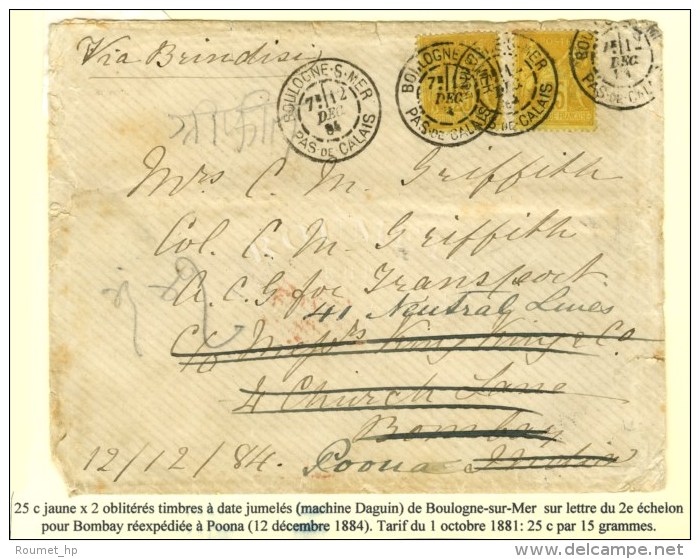 Via Brindisi
BOULOGNE-S-MER
7E 12
DEC
84
PAS-DE-CALAIS
BOULOGNE-S-MER
DEC
PAS-DE-CALAIS
12
DEC
PAS-DE-CALAIS
Mrs C. M. Griffith
Col. C. M. Griffith
A. C. G for Transport
41 Neutral Lines
C/o Messrs King King & Co
4 Church Lane
Bombay
12/12/84. Poona India
25 c jaune x 2 oblitérés timbres à date jumelés (machine Daguin) de Boulogne-sur-Mer sur lettre du 2e échelon
pour Bombay réexpédiée à Poona (12 décembre 1884). Tarif du 1 octobre 1881: 25 c par 15 grammes.
Roumet_hp
delcampe.net